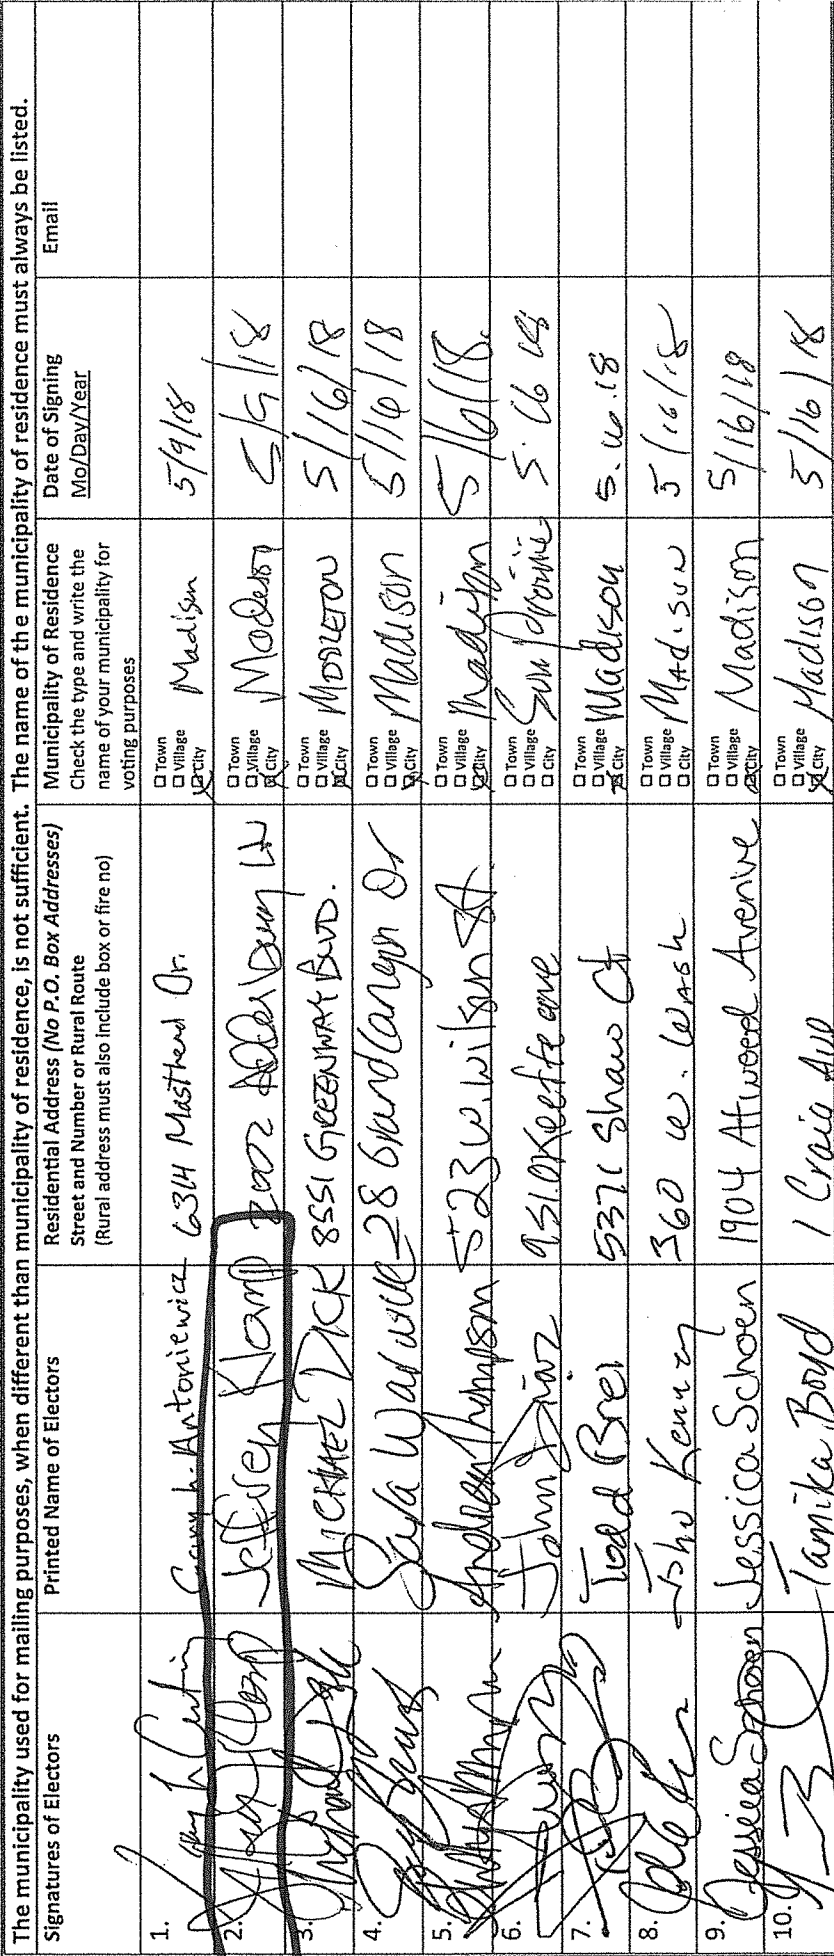 The municipality used for mailing purposes, when different than municipality of residence, is not sufficient. The name of the municipality of residence must always be listed.
Signatures of Electors
Printed Name of Electors
Residential Address (No P.O. Box Addresses)
Street and Number or Rural Route
(Rural address must also include box or fire no)
Municipality of Residence
Check the type and write the
name of your municipality for
voting purposes
Date of Signing
Mo/Day/Year
Email
1. Gary L. Antoniewicz 6314 Masthead Dr. □ Town □ Village □ City Madison 5/9/18
2. Jeffrey 2002 Ln □ Town □ Village □ City Madison 5/9/18
3. MICHAEL DICK 8551 GREENWAY BLVD. □ Town □ Village □ City MIDDLETON 5/16/18
4. Sara 28 Grand Canyon Dr □ Town □ Village □ City Madison 5/16/18
5. Andrew Thompson 523 W. Wilson St. □ Town □ Village □ City Madison 5/16/18
6. John Diaz 951 OKeeffe ave □ Town □ Village □ City Sun Prairie 5.16.18
7. Todd Brei 5371 Shaw Ct □ Town □ Village □ City Madison 5.16.18
8. John Kenney 360 W. Wash □ Town □ Village □ City MADISON 5/16/18
9. Jessica Schoen Jessica Schoen 1904 Atwood Avenue □ Town □ Village □ City Madison 5/16/18
10. Tamika Boyd 1 Craig Ave □ Town □ Village □ City Madison 5/16/18